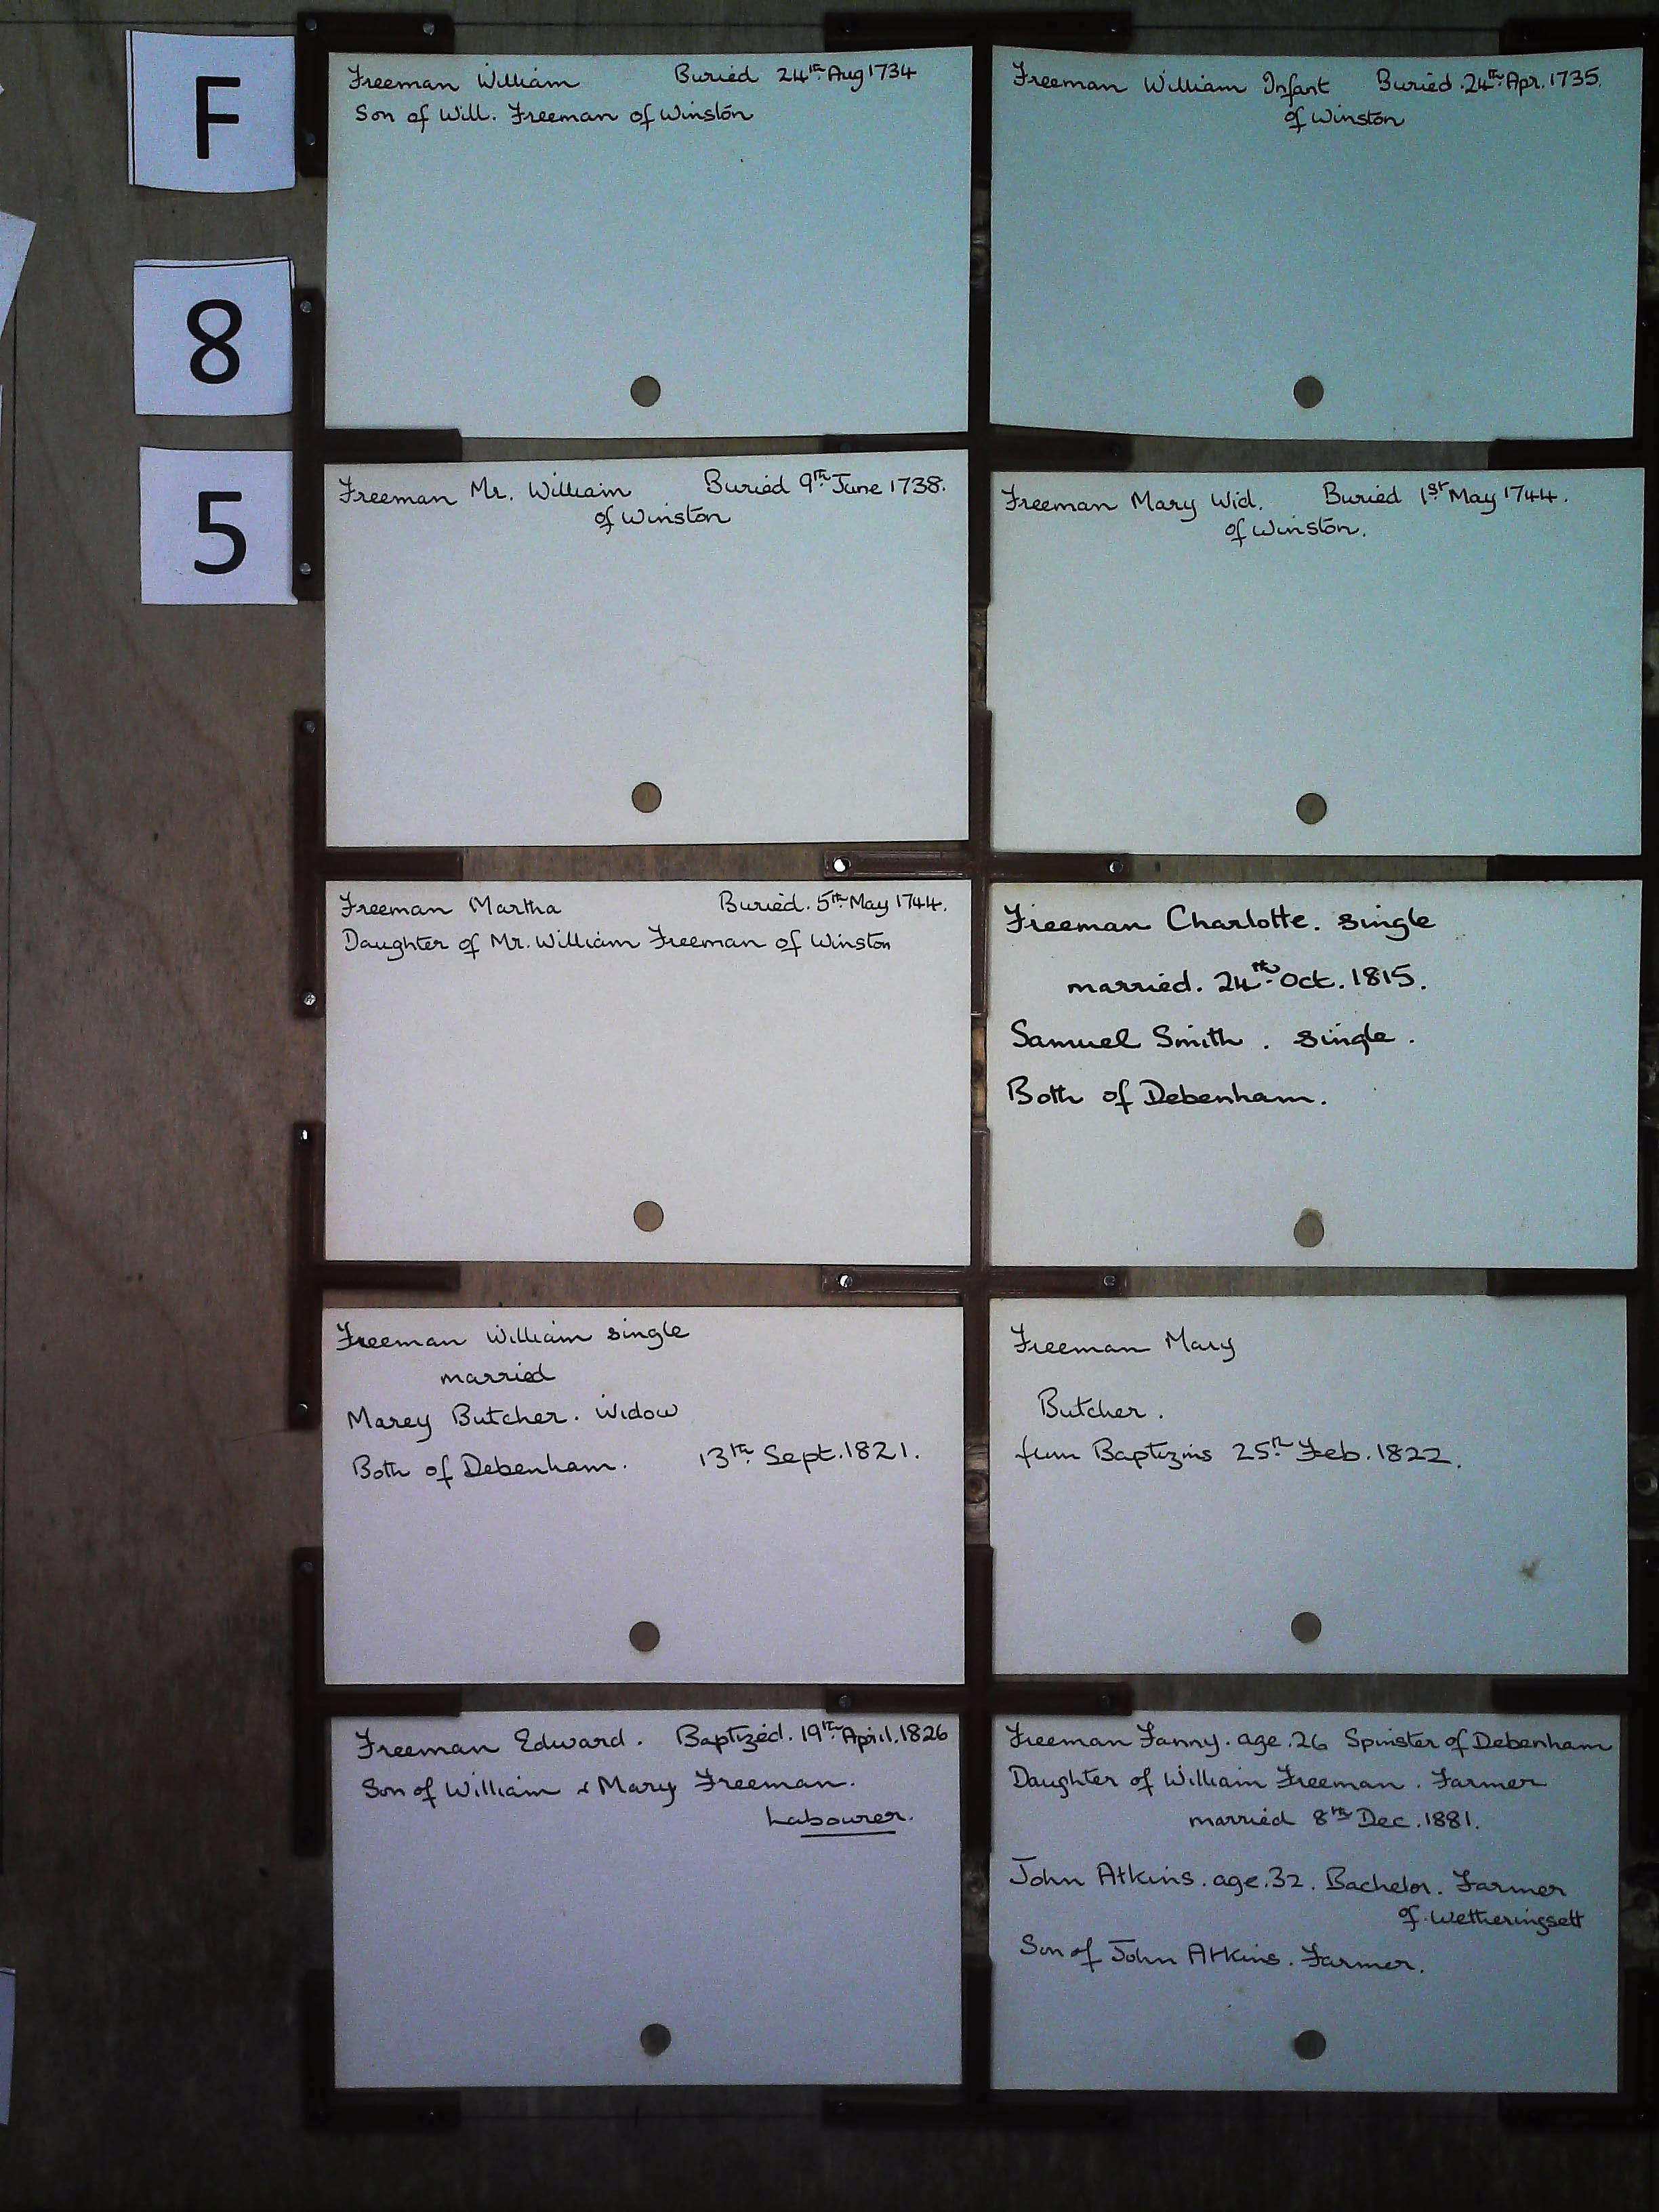 F
8
5
Freeman William Buried 24th Aug 1734
Son of Will. Freeman of Winston
Freeman William Infant Buried.24th.Apr.1735.
of Winston
Freeman Mr. William Buried 9th June 1738.
of Winston
Freeman Mary Wid. Buried 1st May 1744.
of Winston.
Freeman Martha Buried.5th.May 1744.
Daughter of Mr. William Freeman of Winston
Freeman Charlotte. single
married. 24th.Oct.1815.
Samuel Smith. single.
Both of Debenham.
Freeman William single
married
Marey Butcher. Widow
Both of Debenham. 13th.Sept.1821.
Freeman Mary
Butcher.
from Baptizms 25th Feb.1822.
Freeman Edward. Baptized.19th.April.1826
Son of William & Mary Freeman.
Labourer.
Freeman Fanny. age.26 Spinster of Debenham
Daughter of William Freeman. Farmer
married 8th Dec.1881.
John Atkins. age.32. Bachelor. Farmer
of Wetheringsett
Son of John Atkins. Farmer.